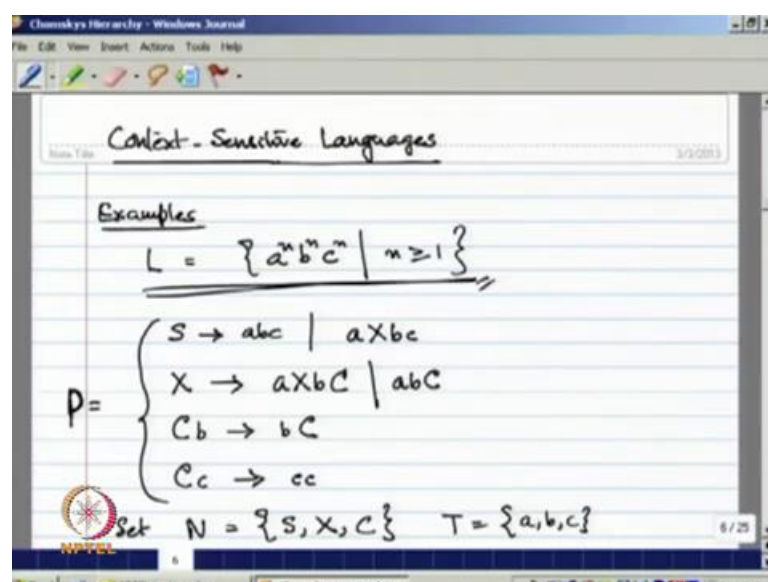 Chomskys Hierarchy - Windows Journal
File Edit View Insert Actions Tools Help
Context-Sensitive Languages
Note Title
3/3/2013
Examples
L = {aⁿbⁿcⁿ | n ≥ 1}
P =
S → abc | aXbc
X → aXbC | abC
Cb → bC
Cc → cc
Set N = {S, X, C} T = {a, b, c}
NPTEL
6
6 / 25